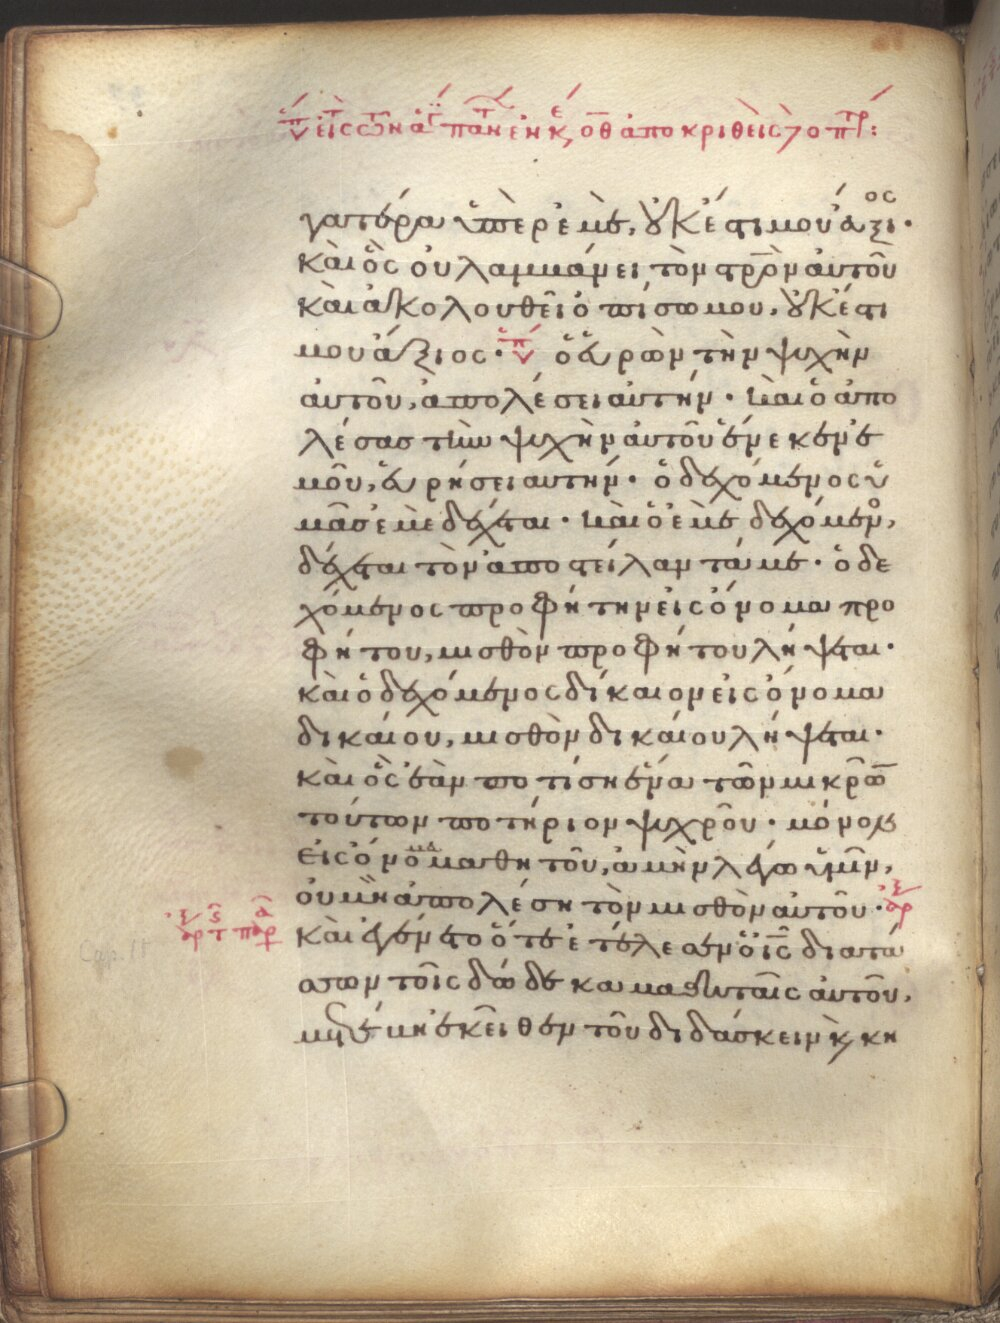 γατέρα ὑπὲρ ἐμὲ, οὐκ ἔστι μου ἄξιος·
καὶ ὃς οὐ λαμβάνει τὸν στρον αὐτοῦ
καὶ ἀκολουθεῖ ὀπίσω μου, οὐκ ἔστι
μου ἄξιος· ὁ εὑρὼν τὴν ψυχὴν
αὐτοῦ, ἀπολέσει αὐτήν· καὶ ὁ ἀπο
λέσας τὴν ψυχὴν αὐτοῦ ἕνεκεν ἐ
μοῦ, εὑρήσει αυτήν· ὁ δεχόμενος ὑ
μᾶς ἐμὲ δέχεται· καὶ ὁ ἐμὲ δεχόμενος,
δέχεται τὸν ἀποστείλαντά με· ὁ δε
χόμενος προφήτην εἰς ὄνομα προ
φήτου, μισθὸν προφήτου λήψεται·
καὶ ὁ δεχόμενος δίκαιον εἰς ὄνομα
δικαίου, μισθὸν δικαίου λήψεται·
καὶ ὃς ἐὰν ποτίση ἕνα τῶν μικρῶν
τούτων ποτήριον ψυχροῦ· μόνον
εἰς ὄνομα μαθητοῦ, ἀμὴν λέγω ὑμῖν,
οὐ μὴ ἀπολέση τὸν μισθὸν αὐτοῦ·
καὶ ἐγένετο ὅτε ἐτέλεσεν ὁ ις διατά
σσων τοῖς δώδεκα μαθηταῖς αὐτοῦ,
μετέβη ἐκεῖθεν τοῦ διδάσκειν κ κη